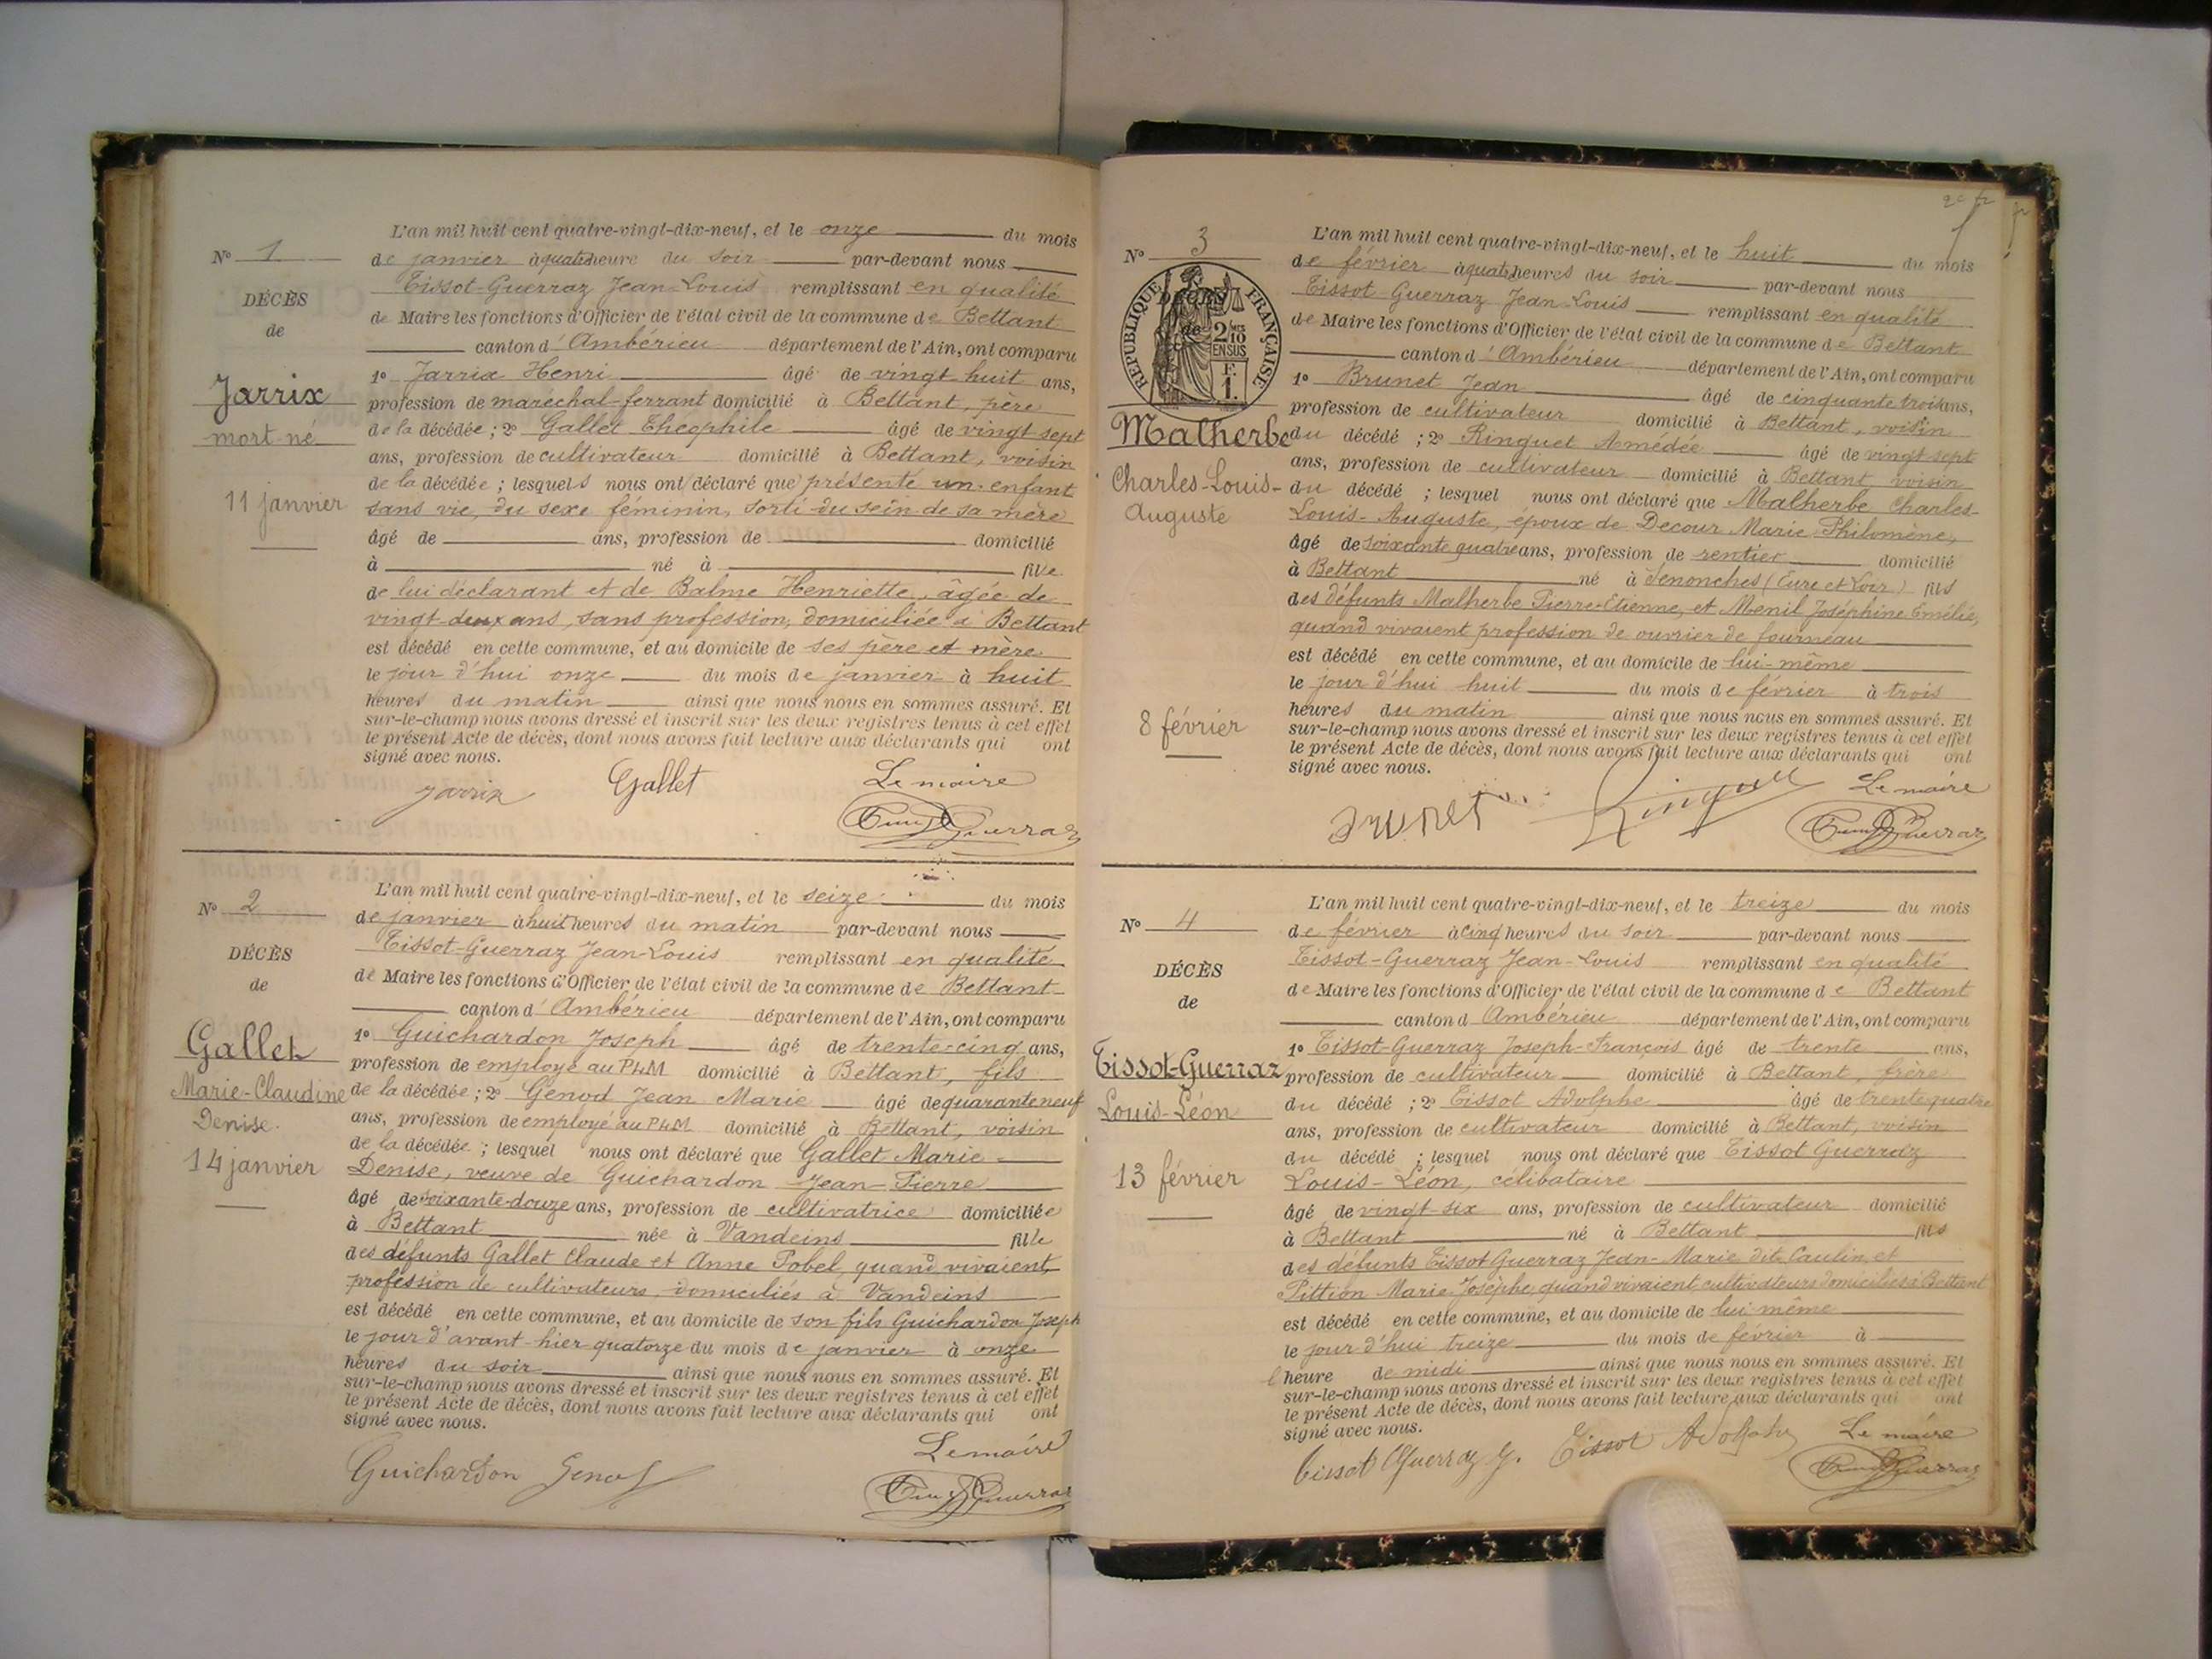 L'an mil huit cent quatre-vingt-dix-neuf, et le onze du mois
N° 1
de janvier à quatre heure du soir par-devant nous
DÉCÈS
Tissot-Guerraz Jean-Louis remplissant en qualité
de
de Maire les fonctions d'Officier de l'état civil de la commune de Bettant
canton d'Ambérieu département de l'Ain, ont comparu
1° Jarrix Henri âgé de vingt huit ans,
Jarrix
profession de maréchal-ferrant domicilié à Bettant, père
mort-né
de la décédée ; 2° Gallet Théophile âgé de vingt sept
ans, profession de cultivateur domicilié à Bettant, voisin
de la décédée ; lesquels nous ont déclaré que présenté un enfant
11 janvier
sans vie, du sexe féminin, sorti du sein de sa mère
âgé de ans, profession de domicilié
à né à fille
de lui déclarant et de Balme Henriette, âgée de
vingt-deux ans, sans profession, domiciliée à Bettant
est décédé en cette commune, et au domicile de ses père et mère
le jour d'hui onze du mois de janvier à huit
heures du matin ainsi que nous nous en sommes assuré. Et
sur-le-champ nous avons dressé et inscrit sur les deux registres tenus à cet effet
le présent Acte de décès, dont nous avons fait lecture aux déclarants qui ont
signé avec nous.
Jarrix Gallet Le maire
Guerraz
L'an mil huit cent quatre-vingt-dix-neuf, et le seize du mois
N° 2
de janvier à huit heures du matin par-devant nous
DÉCÈS
Tissot-Guerraz Jean-Louis remplissant en qualité
de
de Maire les fonctions d'Officier de l'état civil de la commune de Bettant
canton d'Ambérieu département de l'Ain, ont comparu
1° Guichardon Joseph âgé de trente-cinq ans,
Gallet
profession de employé au PLM domicilié à Bettant, fils
Marie-Claudine
de la décédée ; 2° Genod Jean Marie âgé de quarante neuf
Denise
ans, profession de employé au PLM domicilié à Bettant, voisin
de la décédée ; lesquel nous ont déclaré que Gallet Marie-
14 janvier
Denise, veuve de Guichardon Jean-Pierre
âgé de soixante-douze ans, profession de cultivatrice domiciliée
à Bettant née à Vandeins fille
des défunts Gallet Claude et Anne Pobel, quand vivaient,
profession de cultivateurs, domiciliés à Vandeins
est décédé en cette commune, et au domicile de son fils Guichardon Joseph
le jour d'avant-hier quatorze du mois de janvier à onze
heures du soir ainsi que nous nous en sommes assuré. Et
sur-le-champ nous avons dressé et inscrit sur les deux registres tenus à cet effet
le présent Acte de décès, dont nous avons fait lecture aux déclarants qui ont
signé avec nous.
Le maire
Guichardon Genod
Guerraz
L'an mil huit cent quatre-vingt-dix-neuf, et le huit du mois
N° 3
de février à quatre heures du soir par-devant nous
RÉPUBLIQUE FRANÇAISE
DÉCÈS
Tissot-Guerraz Jean-Louis remplissant en qualité
de
2/10 EN SUS
F. 1.
de Maire les fonctions d'Officier de l'état civil de la commune de Bettant
canton d'Ambérieu département de l'Ain, ont comparu
1° Brunet Jean âgé de cinquante trois ans,
profession de cultivateur domicilié à Bettant, voisin
Malherbe
du décédé ; 2° Ringuet Amédée âgé de vingt sept
ans, profession de cultivateur domicilié à Bettant voisin
Charles-Louis-
du décédé ; lesquel nous ont déclaré que Malherbe Charles-
Auguste
Louis-Auguste, époux de Decour Marie Philomène,
âgé de soixante quatre ans, profession de rentier domicilié
à Bettant né à Senonches (Eure et Loir) fils
des défunts Malherbe Pierre-Etienne, et Menil Joséphine Emélie,
quand vivaient profession de ouvrier de fourneau
est décédé en cette commune, et au domicile de lui-même
le jour d'hui huit du mois de février à trois
8 février
heures du matin ainsi que nous nous en sommes assuré. Et
sur-le-champ nous avons dressé et inscrit sur les deux registres tenus à cet effet
le présent Acte de décès, dont nous avons fait lecture aux déclarants qui ont
signé avec nous.
Brunet Ringuet Le maire
Guerraz
L'an mil huit cent quatre-vingt-dix-neuf, et le treize du mois
N° 4
de février à cinq heures du soir par-devant nous
DÉCÈS
Tissot-Guerraz Jean-Louis remplissant en qualité
de
de Maire les fonctions d'Officier de l'état civil de la commune de Bettant
canton d Ambérieu département de l'Ain, ont comparu
1° Tissot-Guerraz Joseph-François âgé de trente ans,
Tissot-Guerraz
profession de cultivateur domicilié à Bettant, frère
Louis-Léon
du décédé ; 2° Tissot Adolphe âgé de trente quatre
ans, profession de cultivateur domicilié à Bettant, voisin
du décédé ; lesquel nous ont déclaré que Tissot Guerraz
13 février
Louis-Léon, célibataire
âgé de vingt-six ans, profession de cultivateur domicilié
à Bettant né à Bettant fils
des défunts Tissot Guerraz Jean-Marie dit Caulin, et
Pittion Marie Josèphe, quand vivaient cultivateurs domiciliés à Bettant
est décédé en cette commune, et au domicile de lui même
le jour d'hui treize du mois de février à
l'heure de midi ainsi que nous nous en sommes assuré. Et
sur-le-champ nous avons dressé et inscrit sur les deux registres tenus à cet effet
le présent Acte de décès, dont nous avons fait lecture aux déclarants qui ont
signé avec nous.
Tissot Guerraz J. Tissot Adolphe Le maire
Guerraz